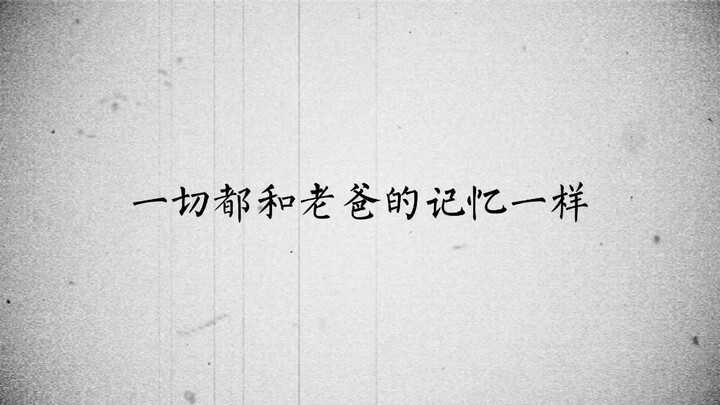 一切都和老爸的记忆一样